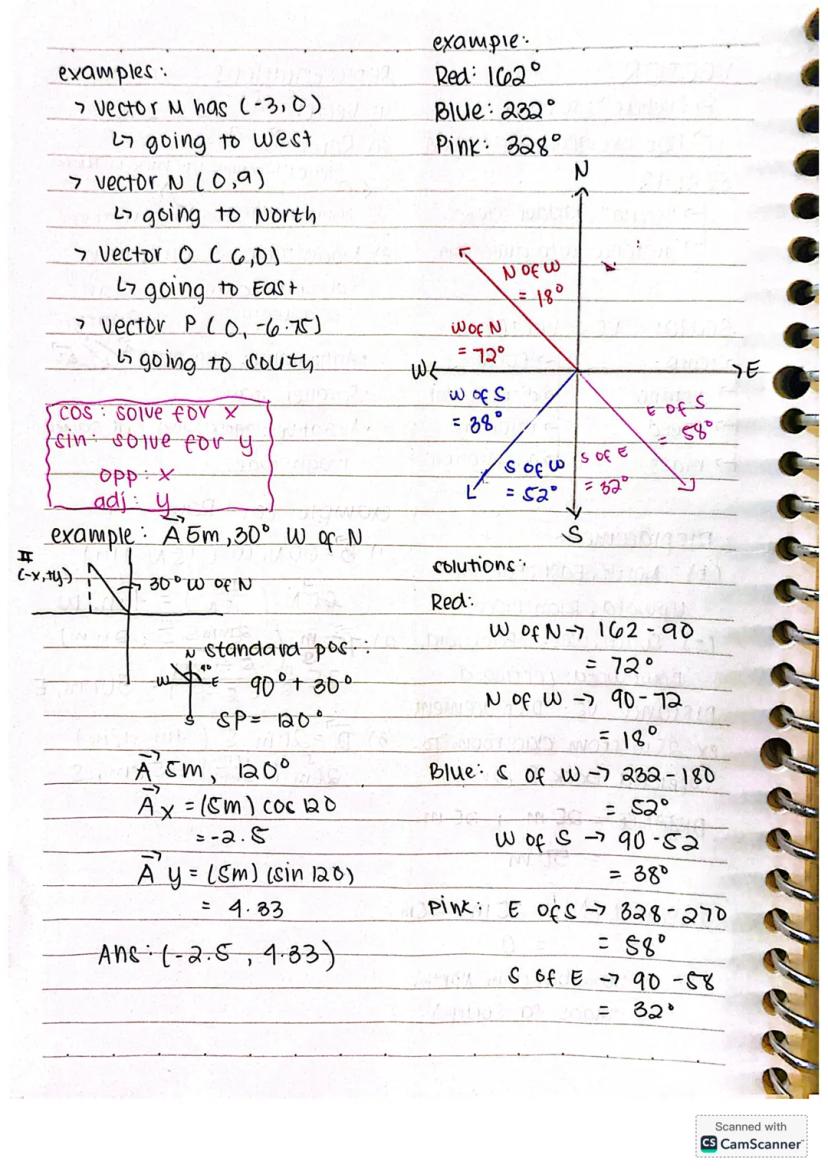 examples:
> Vector M has (-3,0)
↳ going to West
> Vector N (0,9)
↳ going to North
> Vector O (6,0)
↳ going to East
> Vector P (0, -6.75)
↳ going to south
cos: solve for x
sin: solve for y
opp: x
adj: y
example: A 5m, 30° W of N
II
(-x,+y)
30° W of N
standard pos.:
N
90°
W
E
S
90° + 30°
SP = 120°
A 5m, 120°
A x = (5m) cos 120
= -2.5
A y = (5m) (sin 120)
= 4.33
Ans: (-2.5, 4.33)
example:
Red: 162°
Blue: 232°
Pink: 328°
N
N of W
= 18°
W of N
= 72°
W
E
W of S
= 38°
E of S
= 58°
S of W
= 52°
S of E
= 32°
S
solutions:
Red:
W of N → 162 - 90
= 72°
N of W → 90 - 72
= 18°
Blue: S of W → 232 - 180
= 52°
W of S → 90 - 52
= 38°
Pink: E of S → 328 - 270
= 58°
S of E → 90 - 58
= 32°
Scanned with
CS CamScanner